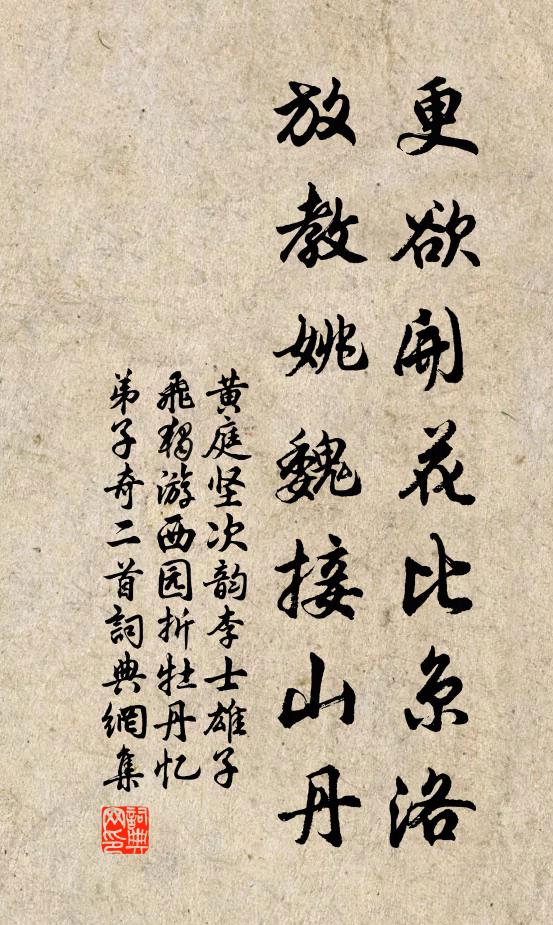 更欲開花比京洛
放教姚魏接山丹
黄庭坚次韵李士雄子
飛獨游西园折牡丹忆
弟子奇二首詞典網集
詞典网印